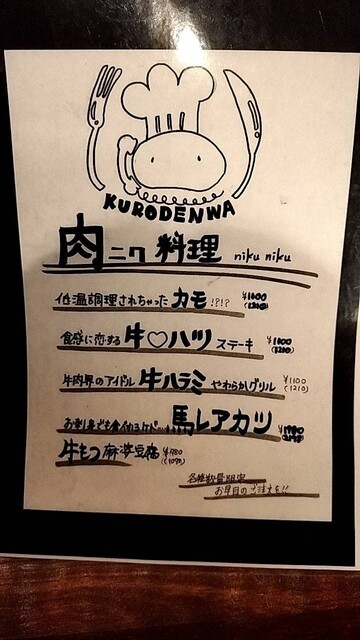 KURODENWA
肉ニク料理 niku niku
低温調理されちゃったカモ!?!? ¥1100
(1210)
食感に恋する牛♡ハツステーキ ¥1100
(1210)
牛肉界のアイドル牛ハラミやわらかグリル ¥1100
(1210)
馬レアカツ
牛もつ麻婆豆腐 ¥980
各種数量限定
お早目のご注文を!!